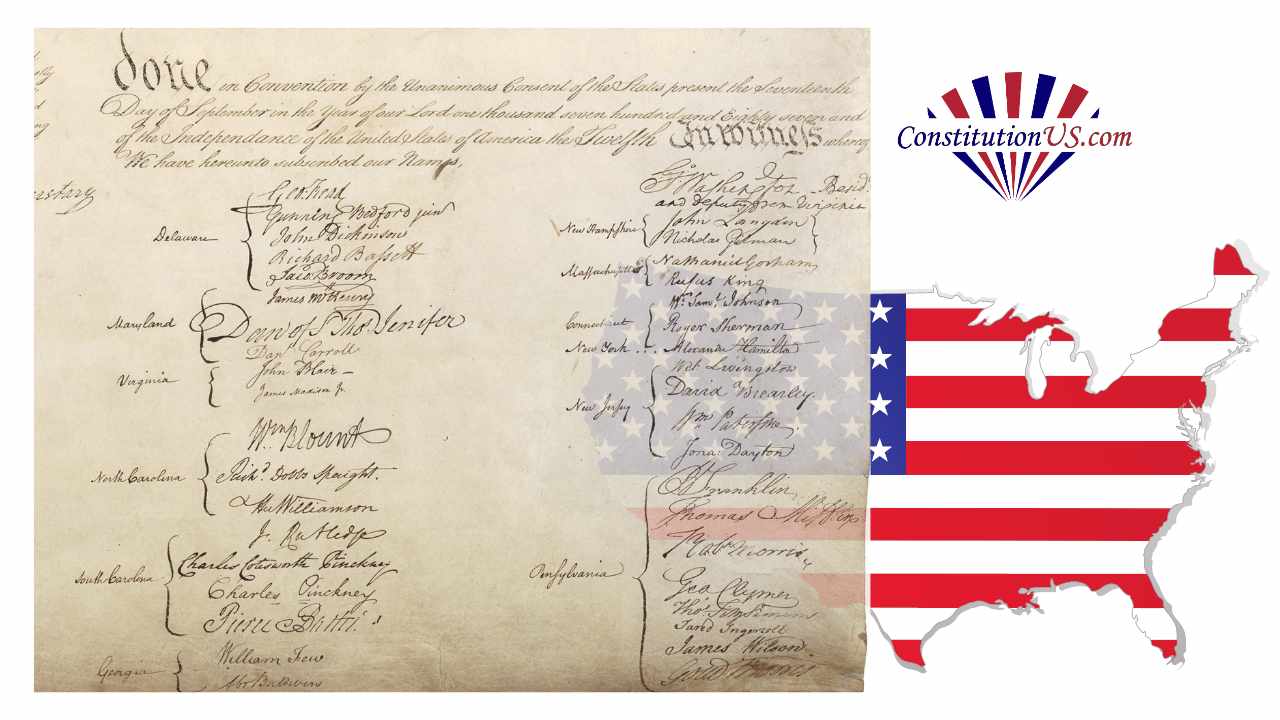 done in Convention by the Unanimous Consent of the States present the Seventeenth
Day of September in the Year of our Lord one thousand seven hundred and Eighty seven and
of the Independance of the United States of America the Twelfth In Witness whereof
We have hereunto subscribed our Names,
Delaware
Geo: Read
Gunning Bedford jun
John Dickinson
Richard Bassett
Jaco: Broom
Maryland
James McHenry
Dan of St Thos. Jenifer
Danl Carroll
Virginia
John Blair —
James Madison Jr.
North Carolina
Wm. Blount
Richd. Dobbs Spaight.
Hu Williamson
South Carolina
J. Rutledge
Charles Cotesworth Pinckney
Charles Pinckney
Pierce Butler.
Georgia
William Few
Abr Baldwin
Go. Washington Presidt.
and deputy from Virginia
New Hampshire
John Langdon
Nicholas Gilman
Massachusetts
Nathaniel Gorham
Rufus King
Connecticut
Wm. Saml. Johnson
Roger Sherman
New York . . . Alexander Hamilton
New Jersey
Wil: Livingston
David Brearley.
Wm. Paterson.
Jona: Dayton
Pensylvania
B Franklin
Thomas Mifflin
Robt Morris
Geo Clymer
Thos. FitzSimons
Jared Ingersoll
James Wilson.
Gouv Morris
ConstitutionUS.com